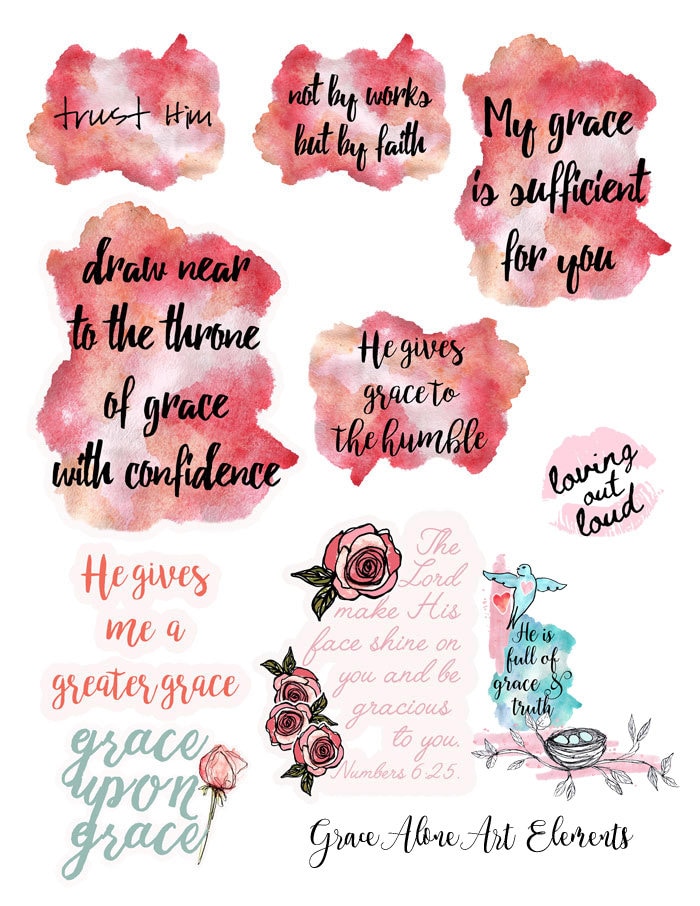 trust Him
not by works
but by faith
My grace
is sufficient
for you
draw near
to the throne
of grace
with confidence
He gives
grace to
the humble
loving
out
loud
He gives
me a
greater grace
The
Lord
make His
face shine on
you and be
gracious
to you.
Numbers 6:25.
He is
full of
grace &
truth
grace
upon
grace
Grace Alone Art Elements